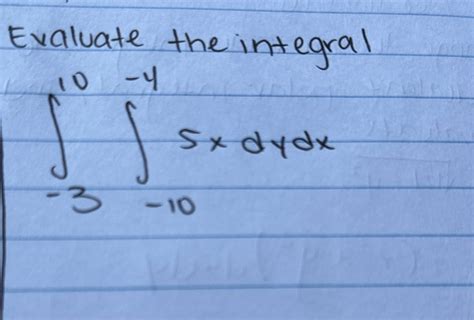 Evaluate the integral
10 -4
∫ ∫ 5x dydx
-3 -10